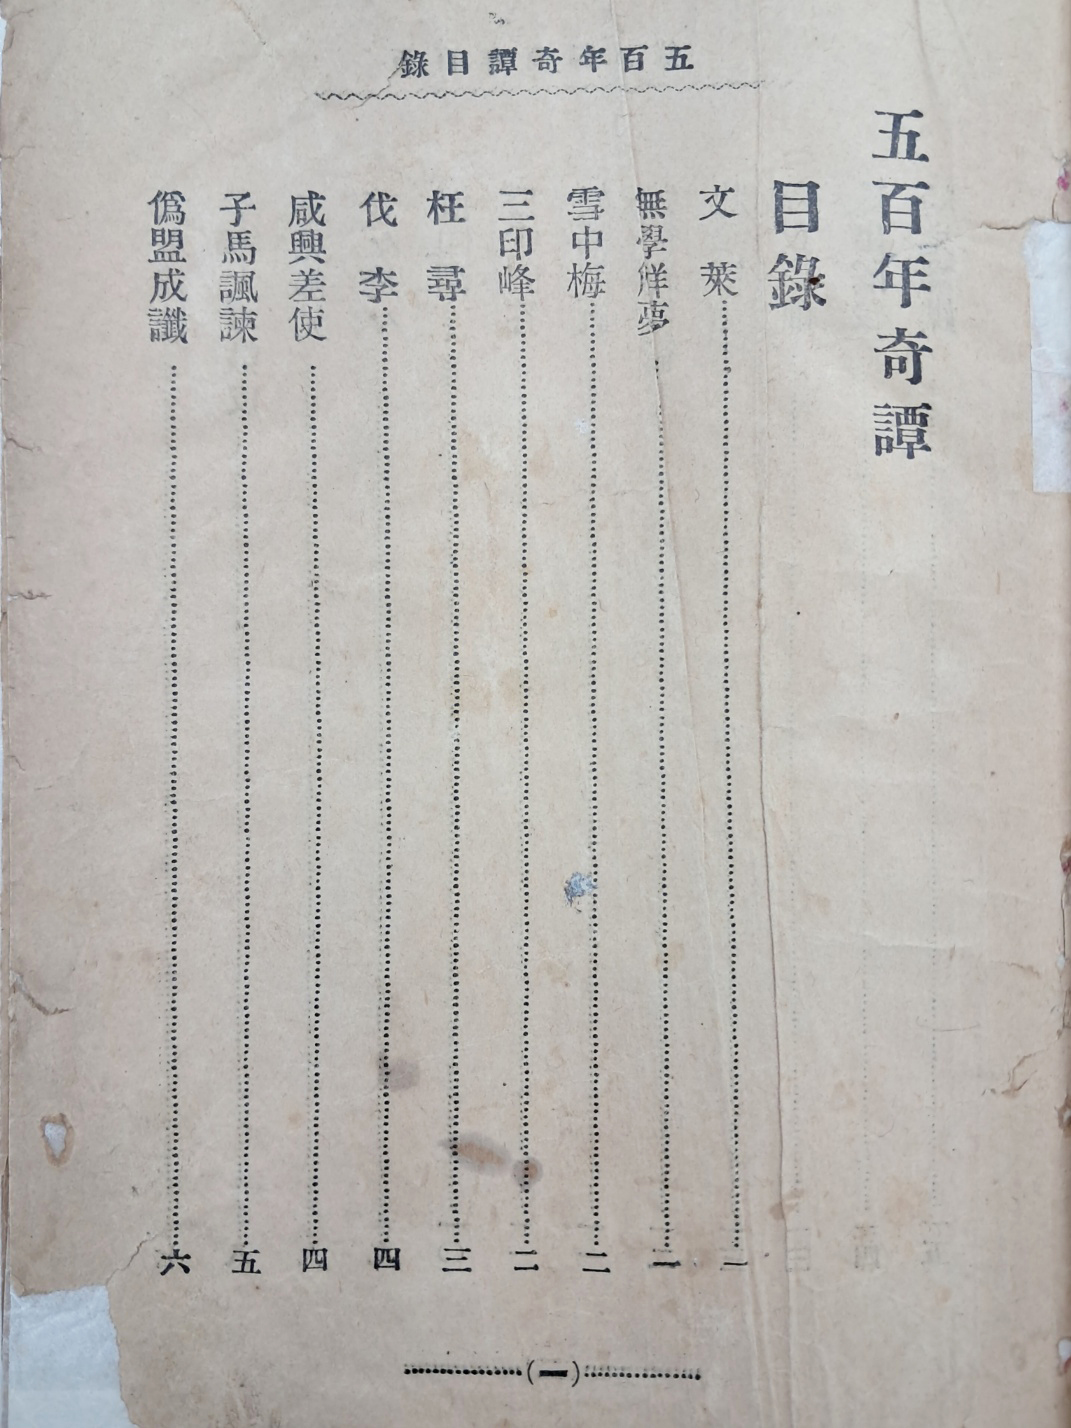 五百年奇譚目錄
五百年奇譚
目錄
文萊……一
無學觧夢……一
雪中梅……二
三印峰……二
枉尋……三
伐李……四
咸興差使……四
子馬諷諫……五
僞盟成讖……六
(一)